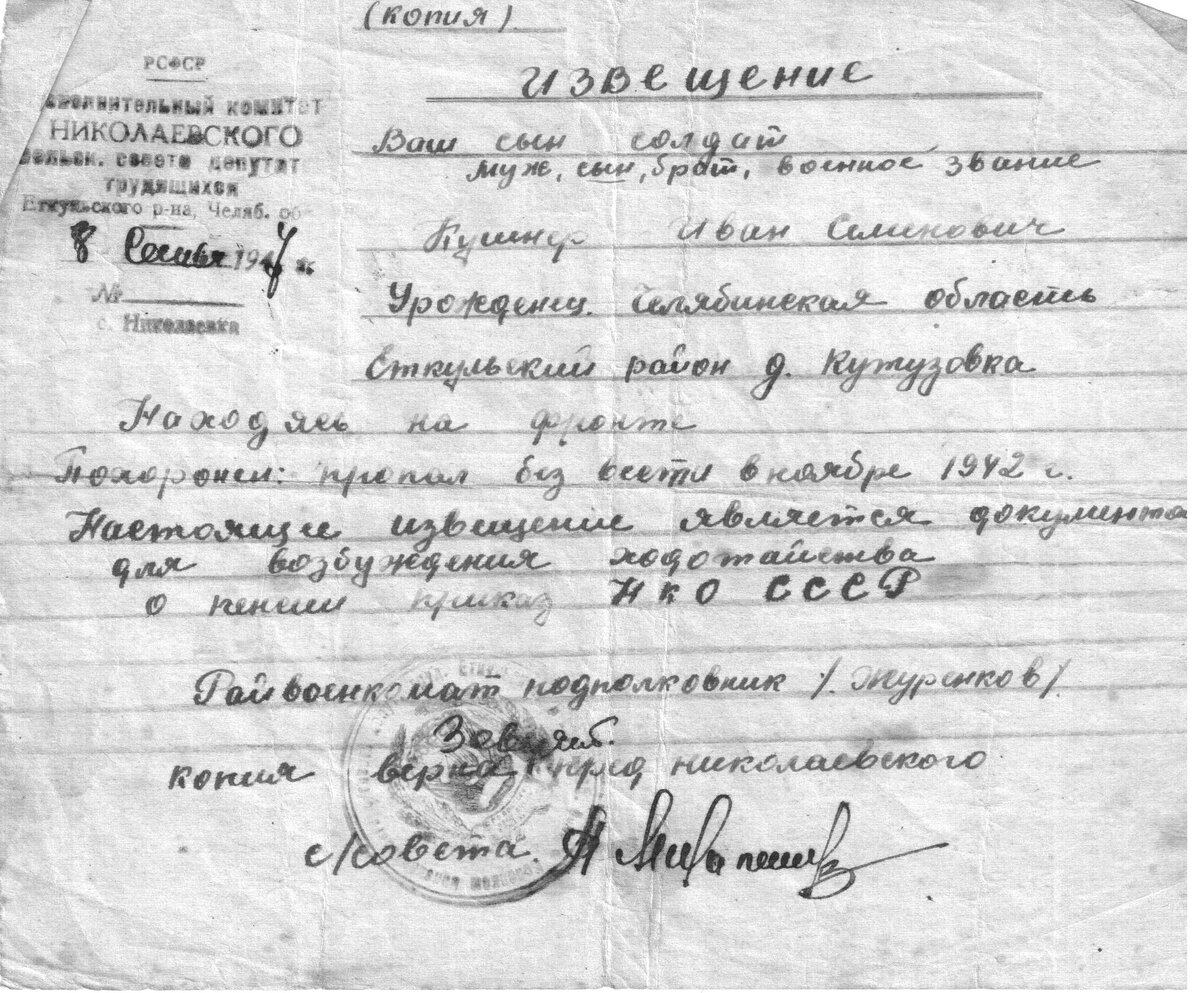 (копия)
РСФСР
исполнительный комитет
НИКОЛАЕВСКОГО
сельск. совета депутат
трудящихся
Еткульского р-на, Челяб. об
8 1947 г.
№
с. Николаевка
Извещение
Ваш сын солдат
муж, сын, брат, военное звание
Кушнер Иван Семенович
Урожденец Челябинская область
Еткульский район д. Кутузовка
Находясь на фронте
Похоронен: пропал без вести в ноябре 1942 г.
Настоящие извищение является документо
для возбуждения ходотайства
о пенсии приказ НКО СССР
Райвоенкомат подполковник /. Журенков/
копия верна пред николаевского
с/совета.